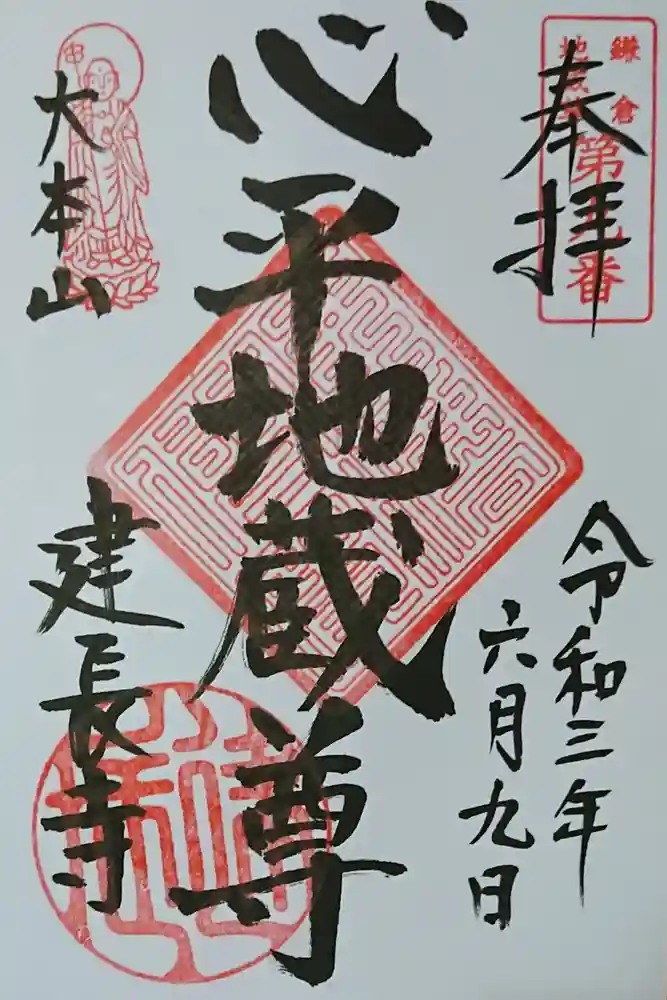 奉拝
鎌倉
地蔵
第九番
令和三年
六月九日
心平地蔵尊
大本山
建長寺